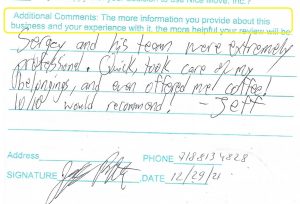 your decision to use Nice Move, Inc.?
Additional Comments: The more information you provide about this
business and your experience with it, the more helpful your review will be.
Sergey and his team were extremely
professional. Quick, took care of my
belongings, and even offered me coffee!
would recommend! - Jeff
Address
PHONE 9188134828
SIGNATURE DATE 12/29/21